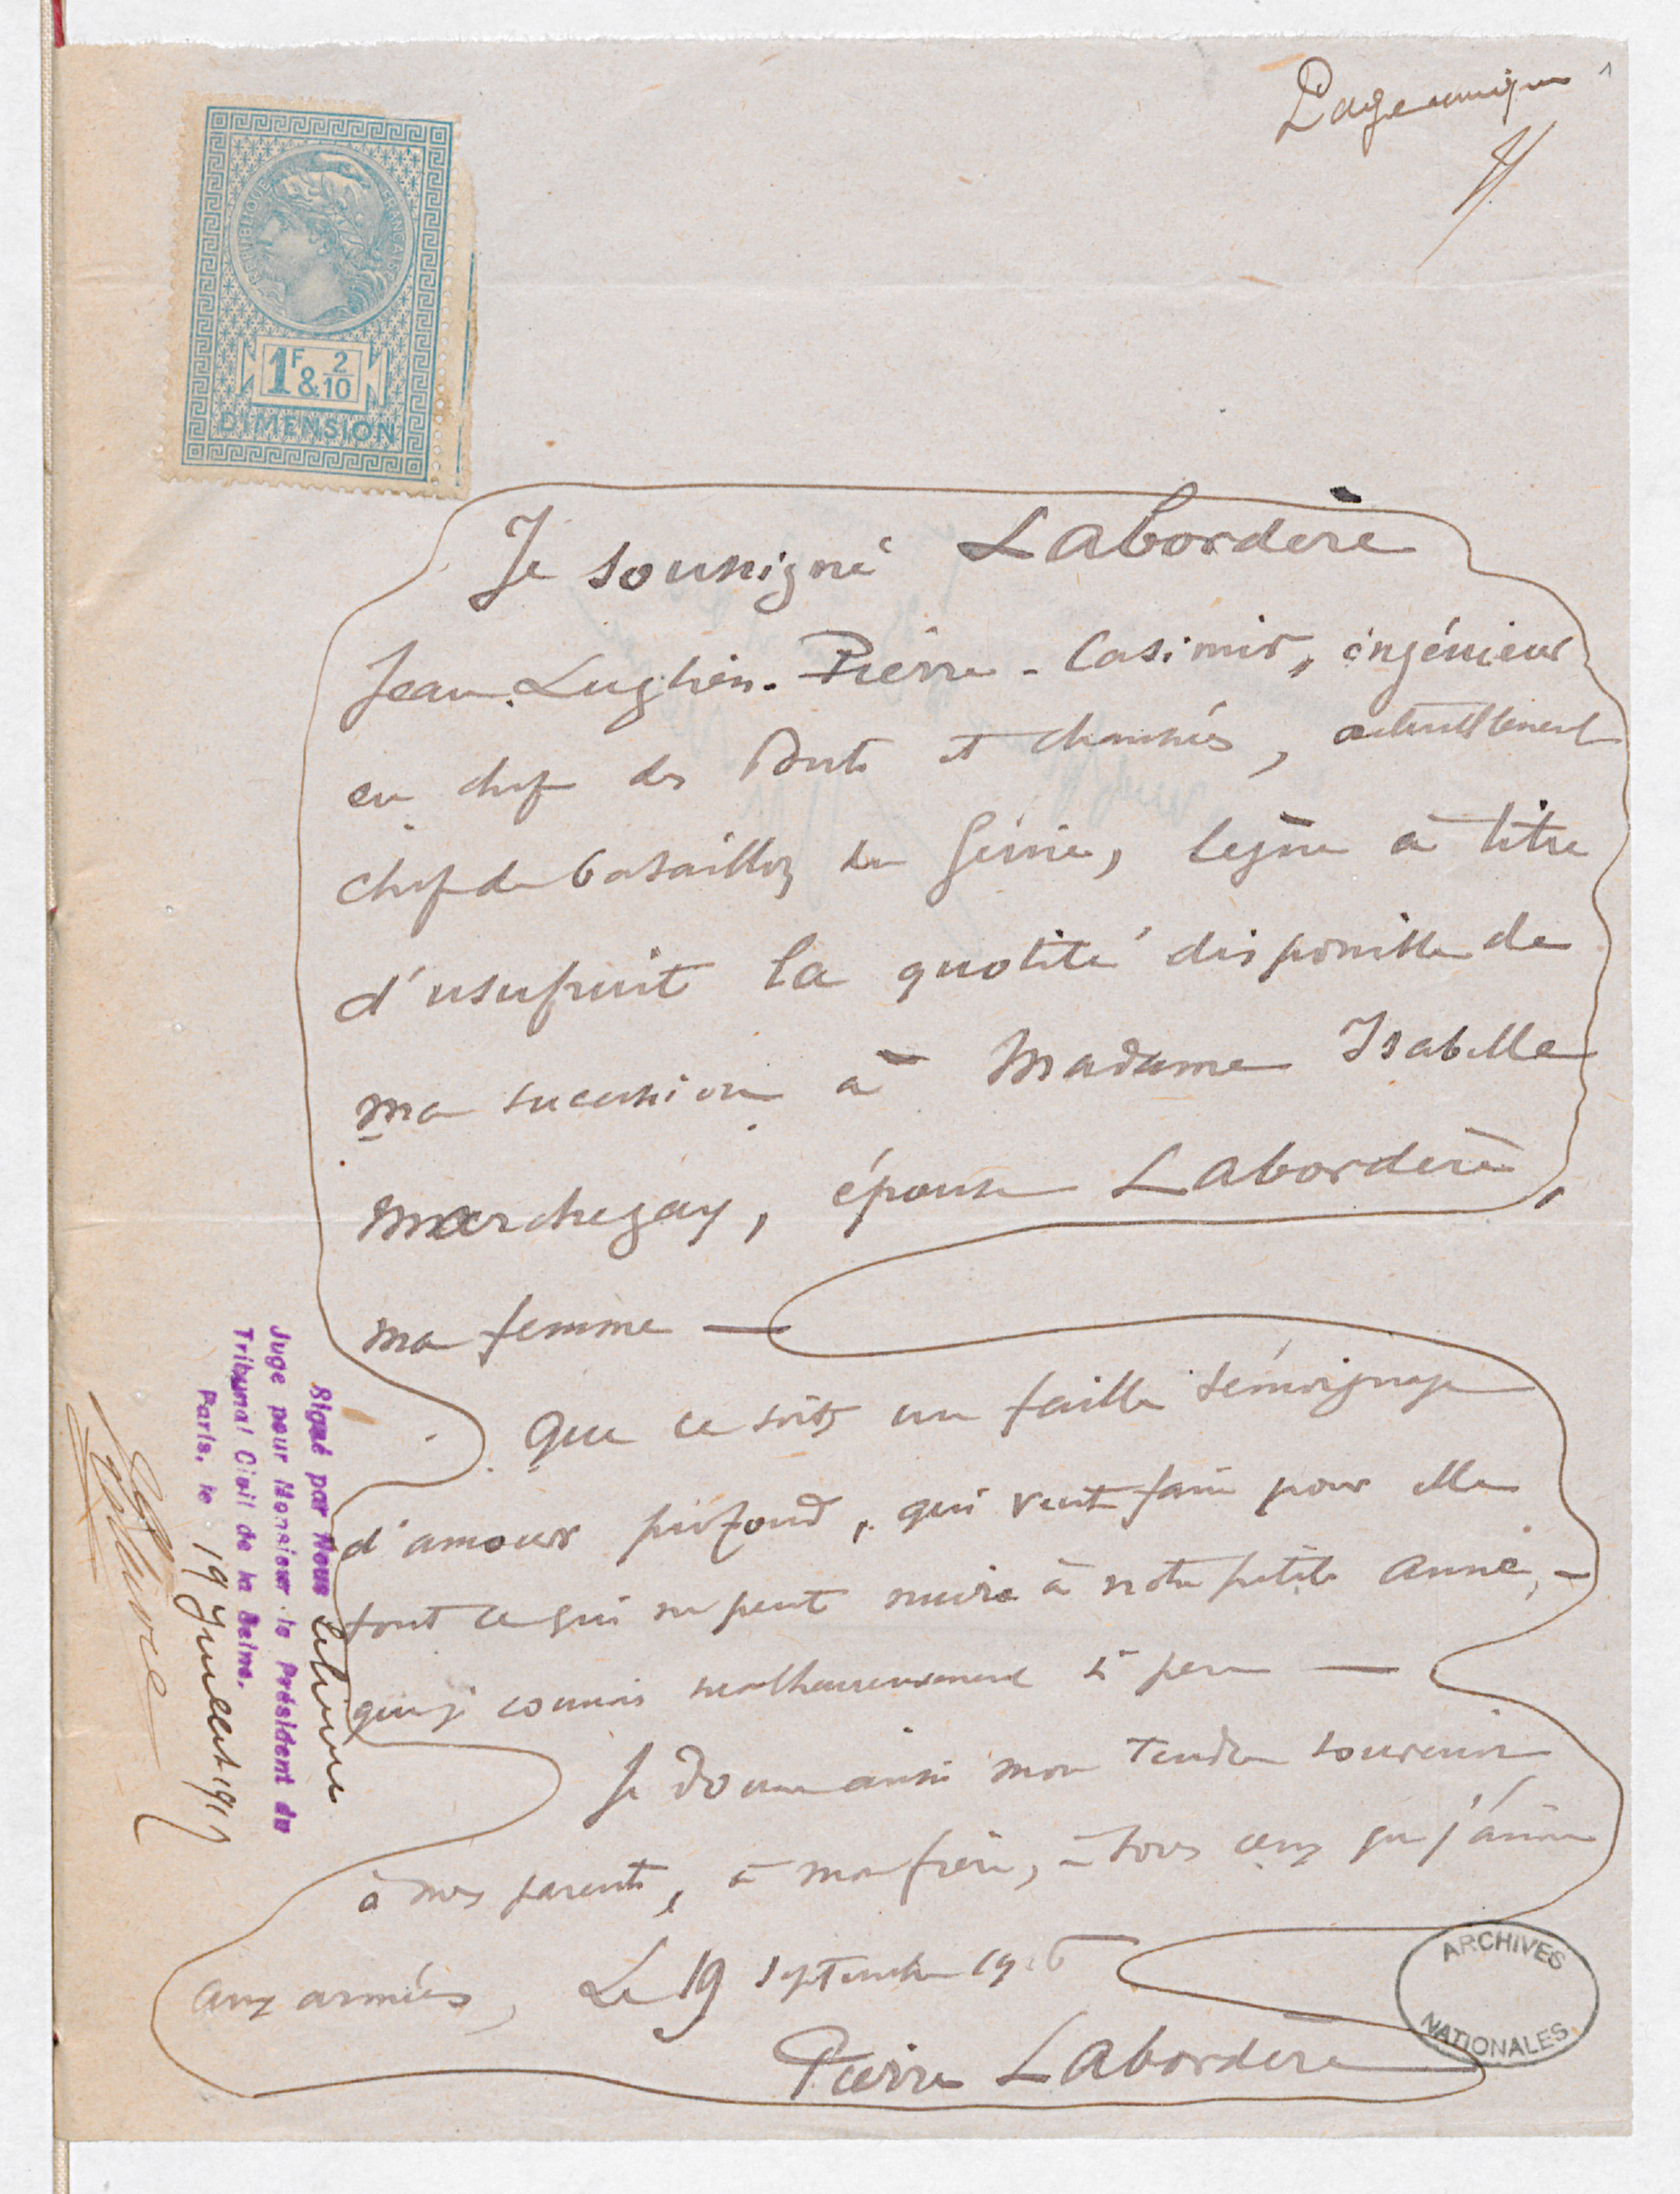 Page unique
RÉPUBLIQUE FRANÇAISE
1F & 2/10
DIMENSION
Je soussigné Labordère
Jean-Lughien-Pierre-Casimir, ingénieur
en chef des Ponts et chaussées, actuellement
chef de bataillon du Génie, lègue à titre
d'usufruit la quotité disponible de
ma succession à Madame Isabelle
Marchegay, épouse Labordère,
ma femme —
Que ce soit un faible témoignage
d'amour profond, qui veut faire pour elle
tout ce qui ne peut nuire à notre petite Anne, —
que je connais malheureusement si peu —
Je donne aussi mon tendre souvenir
à mes parents, à mon frère, à tous ceux que j'aime
aux armées, Le 19 septembre 1916
Pierre Labordère
Signé par Nous
Juge pour Monsieur le Président du
Tribunal Civil de la Seine.
Paris, le 19 Juillet 1917
ARCHIVES
NATIONALES